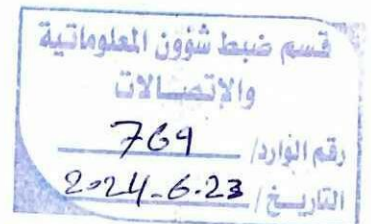 قسم ضبط شؤون المعلوماتية
والاتصالات
رقم الوارد/ 769
التاريخ/ 2024-6-23